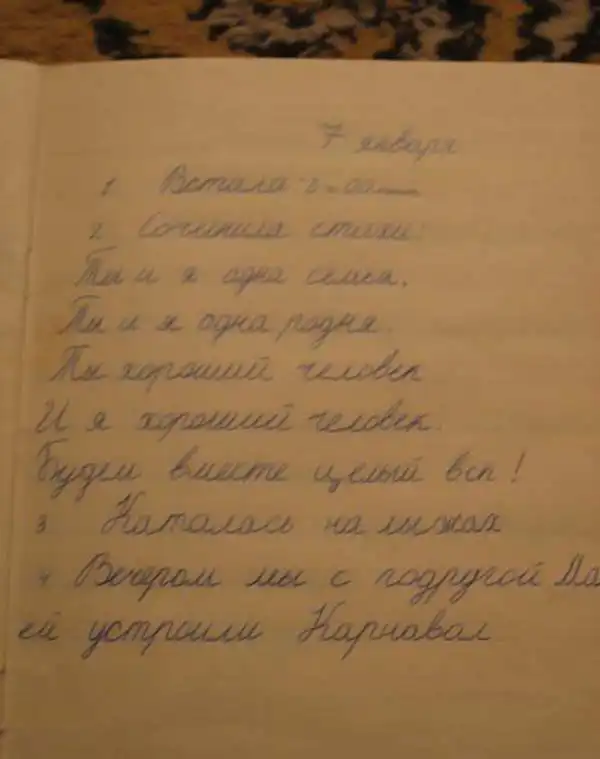 7 января
1 Встала
2. Сочинила стихи.
Ты и я одна семья.
Ты и я одна родня.
Ты хороший человек
И я хороший человек.
Будем вместе целый век!
3 Каталась на лыжах
4 Вечером мы с подругой Да
ей устроили Карнавал